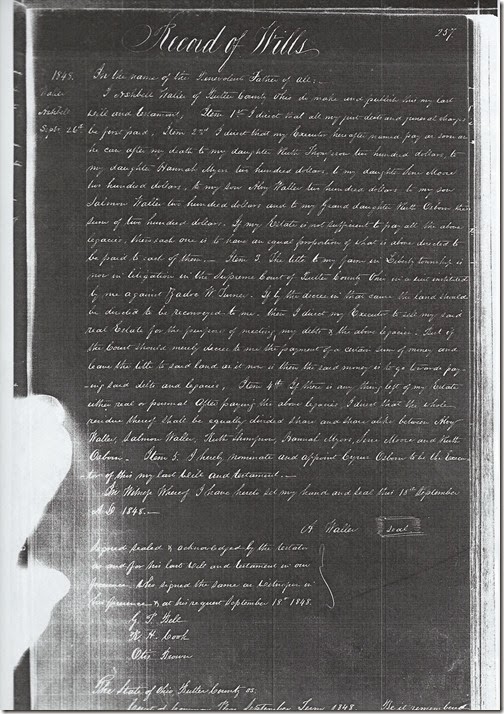 Record of Wills
257
1848.
Sept 26th
In the name of the Benevolent Father of all:—
I Ashbell Waller of Butler County Ohio do make and publish this my last
will and testament, Item 1st I direct that all my just debts and funeral charges
be first paid; Item 2nd I direct that my Executor hereafter named pay as soon as
he can after my death to my daughter Ruth Thompson ten hundred dollars, to
my daughter Hannah Myers two hundred dollars to my daughter Jane Moore
two hundred dollars, to my son Levy Waller two hundred dollars to my son
Salmon Waller two hundred dollars and to my Grand daughter Ruth Osborn the
sum of two hundred dollars. If my Estate is not sufficient to pay all the above
legacies, then each one is to have an equal proportion of what is above directed to
be paid to each of them.— Item 3. The title to my farm in Liberty township is
now in litigation in the Supreme Court of Butler County Ohio in a suit instituted
by me against W Turner. If by the decree in that cause the land should
be directed to be reconveyed to me. then I direct my Executor to sell my said
real Estate for the purpose of meeting my debts & the above legacies. But if
the Court should merely decree to me the payment of a certain sum of money and
leave the title to said land as it now is then the said money is to go towards pay-
ing said debts and legacies, Item 4th If there is any thing left of my Estate
either real or personal after paying the above legacies I direct that the whole
residue thereof shall be equally divided share and share alike between Levy
Waller, Salmon Waller, Ruth Thompson, Hannah Myers, Jane Moore and Ruth
Osborn. Item 5. I hereby nominate and appoint Cyrus Osborn to be the Execu-
tor of this my last Will and testament.—
In Witness Whereof I have hereto set my hand and seal this 18th September
A.D. 1848.—
A Waller seal
Signed sealed & acknowledged by the testator
as and for his last will and testament in our
presence who signed the same as witnesses in
his presence & at his request September 18th 1848.
H. Cook
Otis Brown
The State of Ohio Butler County ss.
September Term 1848 Be it remembered